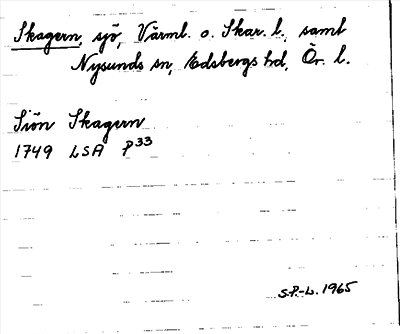 Skagern, sjö, Värml. o. Skar. l. samt
Nysunds sn, Edsbergs hd, Ör. l.
Siön Skagern
1749 LSA P33
S.P.-L. 1965